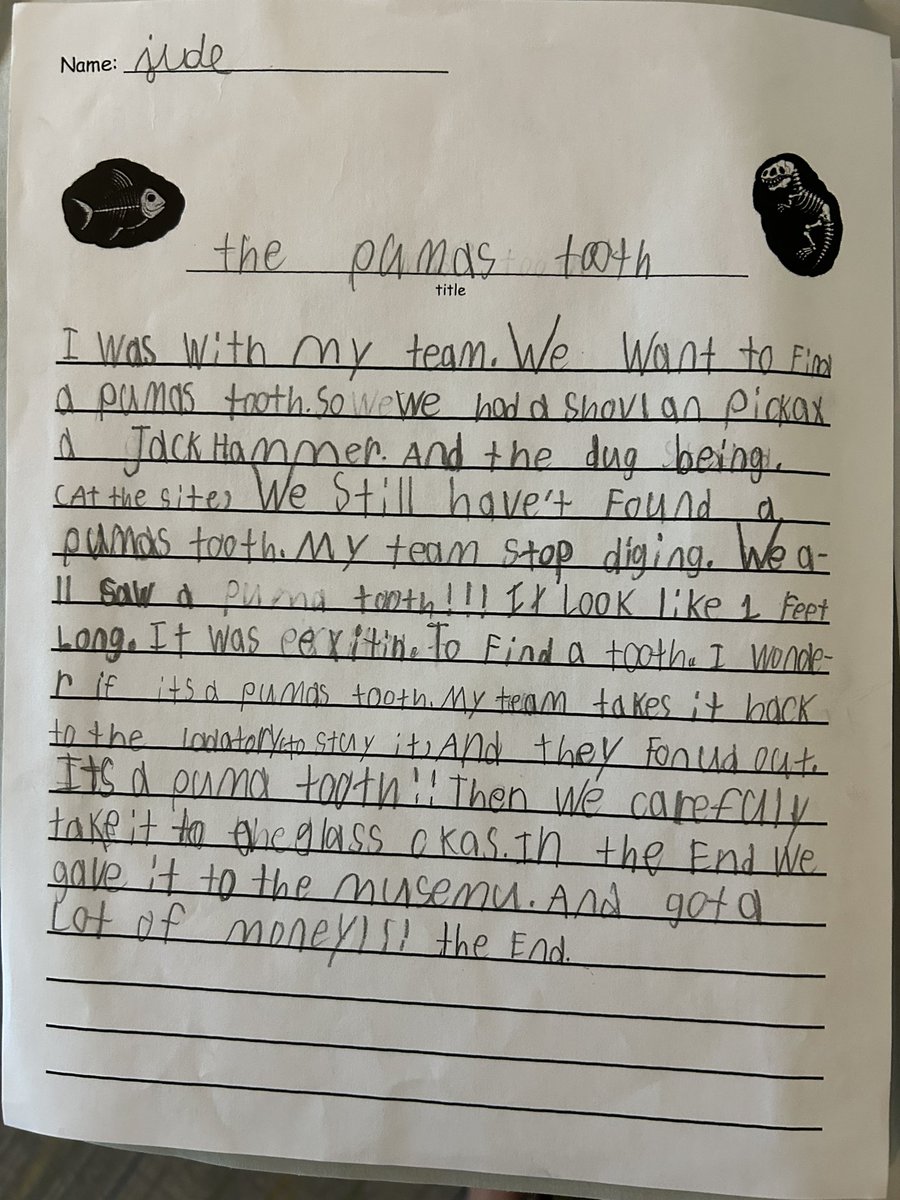 Name: jude
the pumas tooth
title
I was with my team. We Want to Find
a pumas tooth. So we We had a Shovl an Pickax
a Jack Hammer. And the dug being.
(At the site) We Still have't Found a
pumas tooth. My team stop diging. We a-
ll saw a puma tooth!!! It Look like 1 Feet
Long. It was exitin. To Find a tooth. I wonde-
r if its a pumas tooth. My team takes it back
to the ladatory (to stuy it) And they Fonud out.
Its a puma tooth!! Then we carefuly
take it to the glass ckas. In the End We
gave it to the musemu. And got a
Lot of money!!! the End.